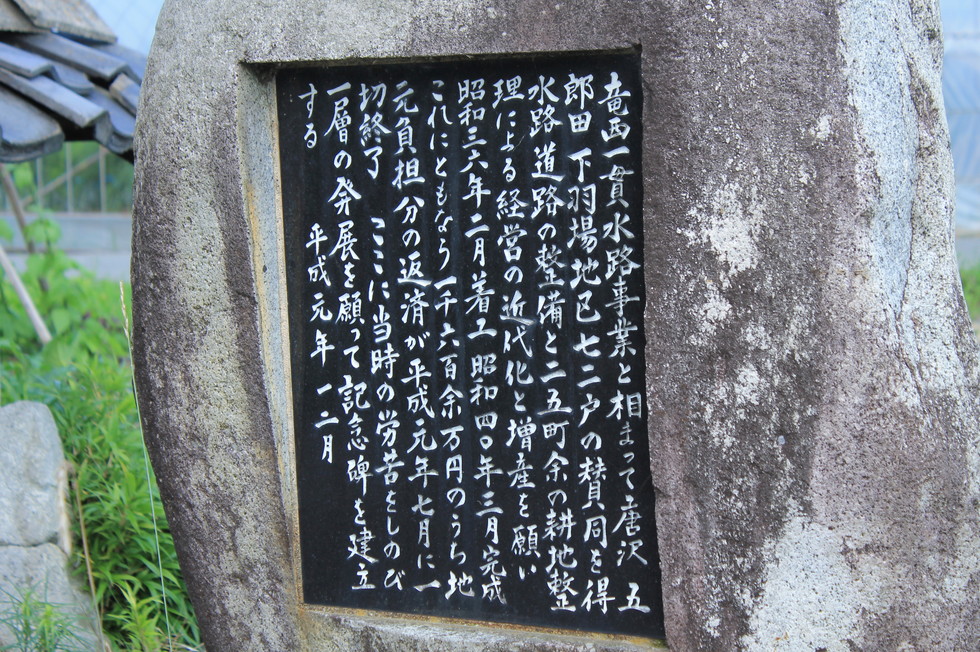 竜西一貫水路事業と相まって唐沢 五
郎田 下羽場地已七二戸の賛同を得
水路道路の整備と二五町余の耕地整
理による経営の近代化と増産を願い
昭和三六年二月着工 昭和四〇年三月完成
これにともなう一千六百余万円のうち地
元負担分の返済が平成元年七月に一
切終了 ここに当時の労苦をしのび
一層の発展を願って記念碑を建立
する 平成元年一二月